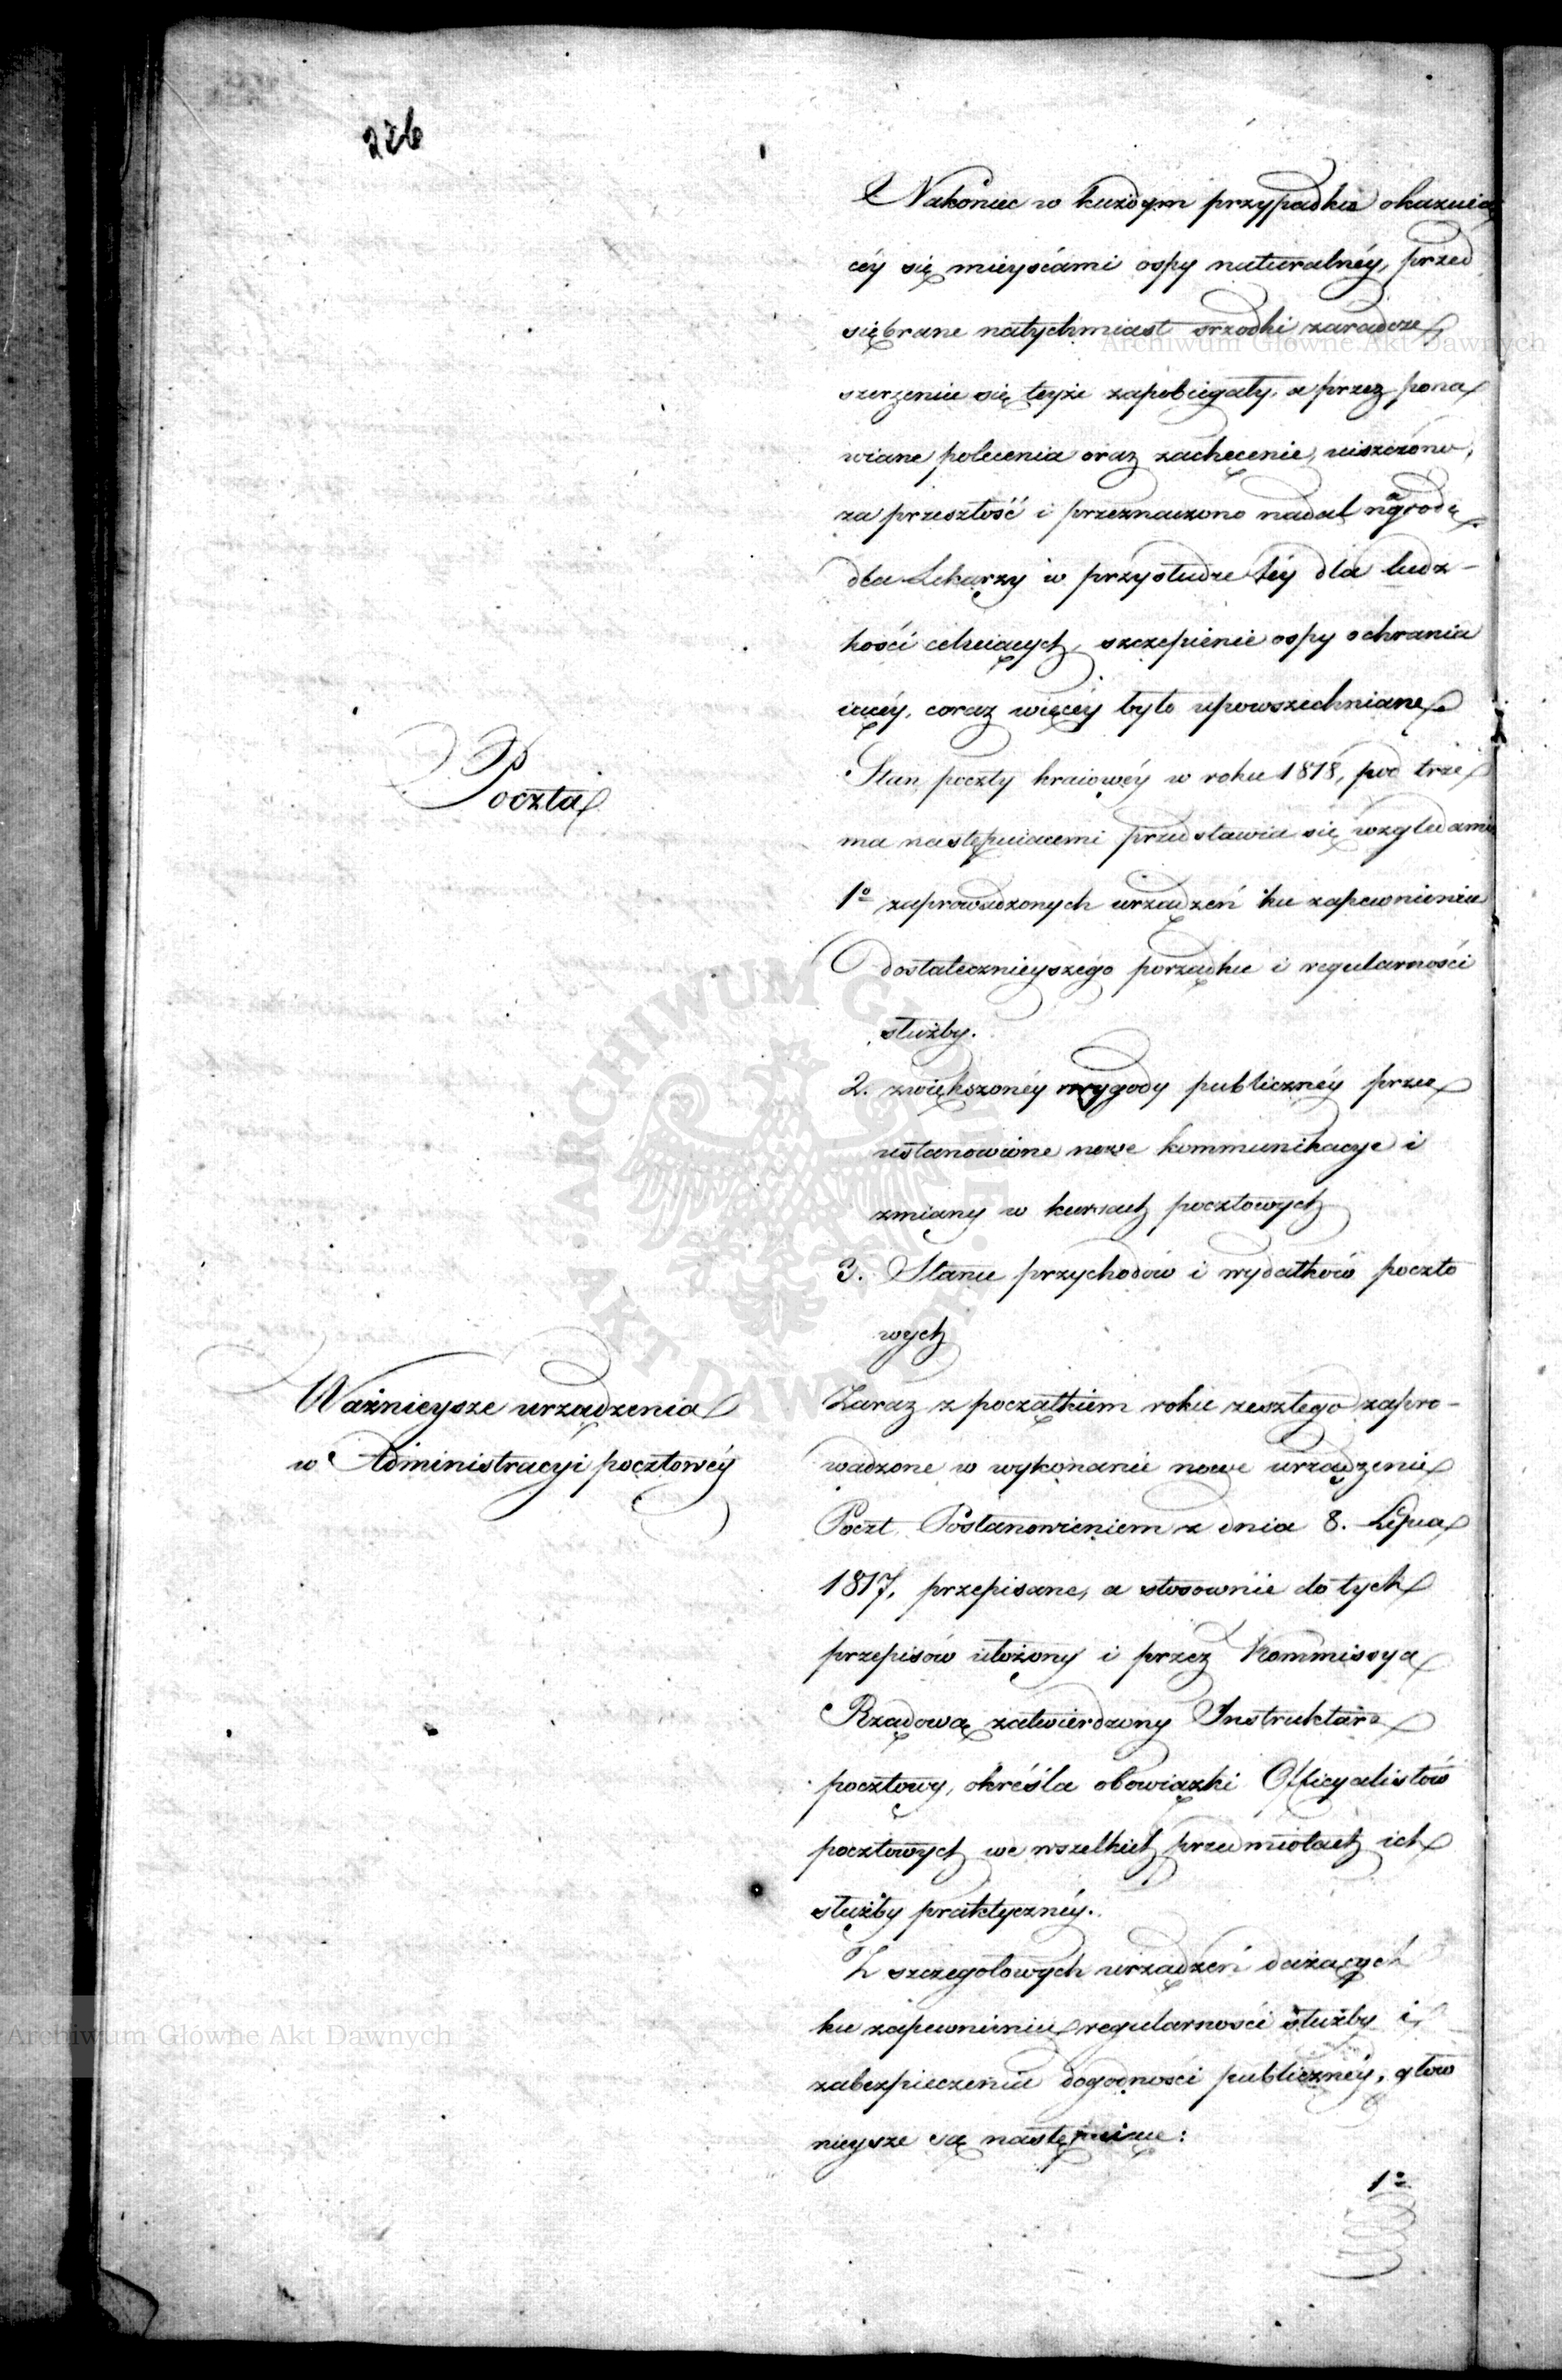 226
Nakoniec w każdym przypadku okazuią
céy się mieyscami ospy naturalnéy, przed
siębrane natychmiast srzodki zaradcze,
szerzeniu się teyże zapobiegały, a przez pona
wiane polecenia oraz zachęcenie, uiszczoną,
za przeszłość i przeznaczoną nadal nagrodę
dla Lekarzy w przysłudze téy dla ludz-
kości celuiących, szczepienie ospy ochrania
iącéy, coraz więcéy było upowszechniane
Poczta
Stan poczty kraiowéy w roku 1818, pod trze
ma następuiącemi przedstawia się względami
1º zaprowadzonych urządzeń ku zapewnieniu
dostatecznieyszego porządku i regularności
służby.
2. zwiększonéy wygody publicznéy przez
ustanowione nowe kommunikacye i
zmiany w kursach pocztowych
3. Stanu przychodów i wydatków poczto
wych
Ważnieysze urządzenia
w Administracyi pocztowéy
Zaraz z początkiem roku zeszłego zapro-
wadzone w wykonanie nowe urządzenie
Poczt Postanowieniem z dnia 8. Lipca
1817, przepisane, a stosownie do tych
przepisów ułożony i przez Kommissyą
Rządową zatwierdzony Instruktarz
pocztowy, określa obowiązki Officyalistów
pocztowych we wszelkich przedmiotach ich
służby praktycznéy.
Z szczegołowych urządzeń dążących
ku zapewnieniu regularności służby i
zabezpieczeniu dogodności publicznéy, głów
nieysze są następuiące:
1º
Archiwum Główne Akt Dawnych
Archiwum Główne Akt Dawnych
ARCHIWUM GŁÓWNE AKT DAWNYCH